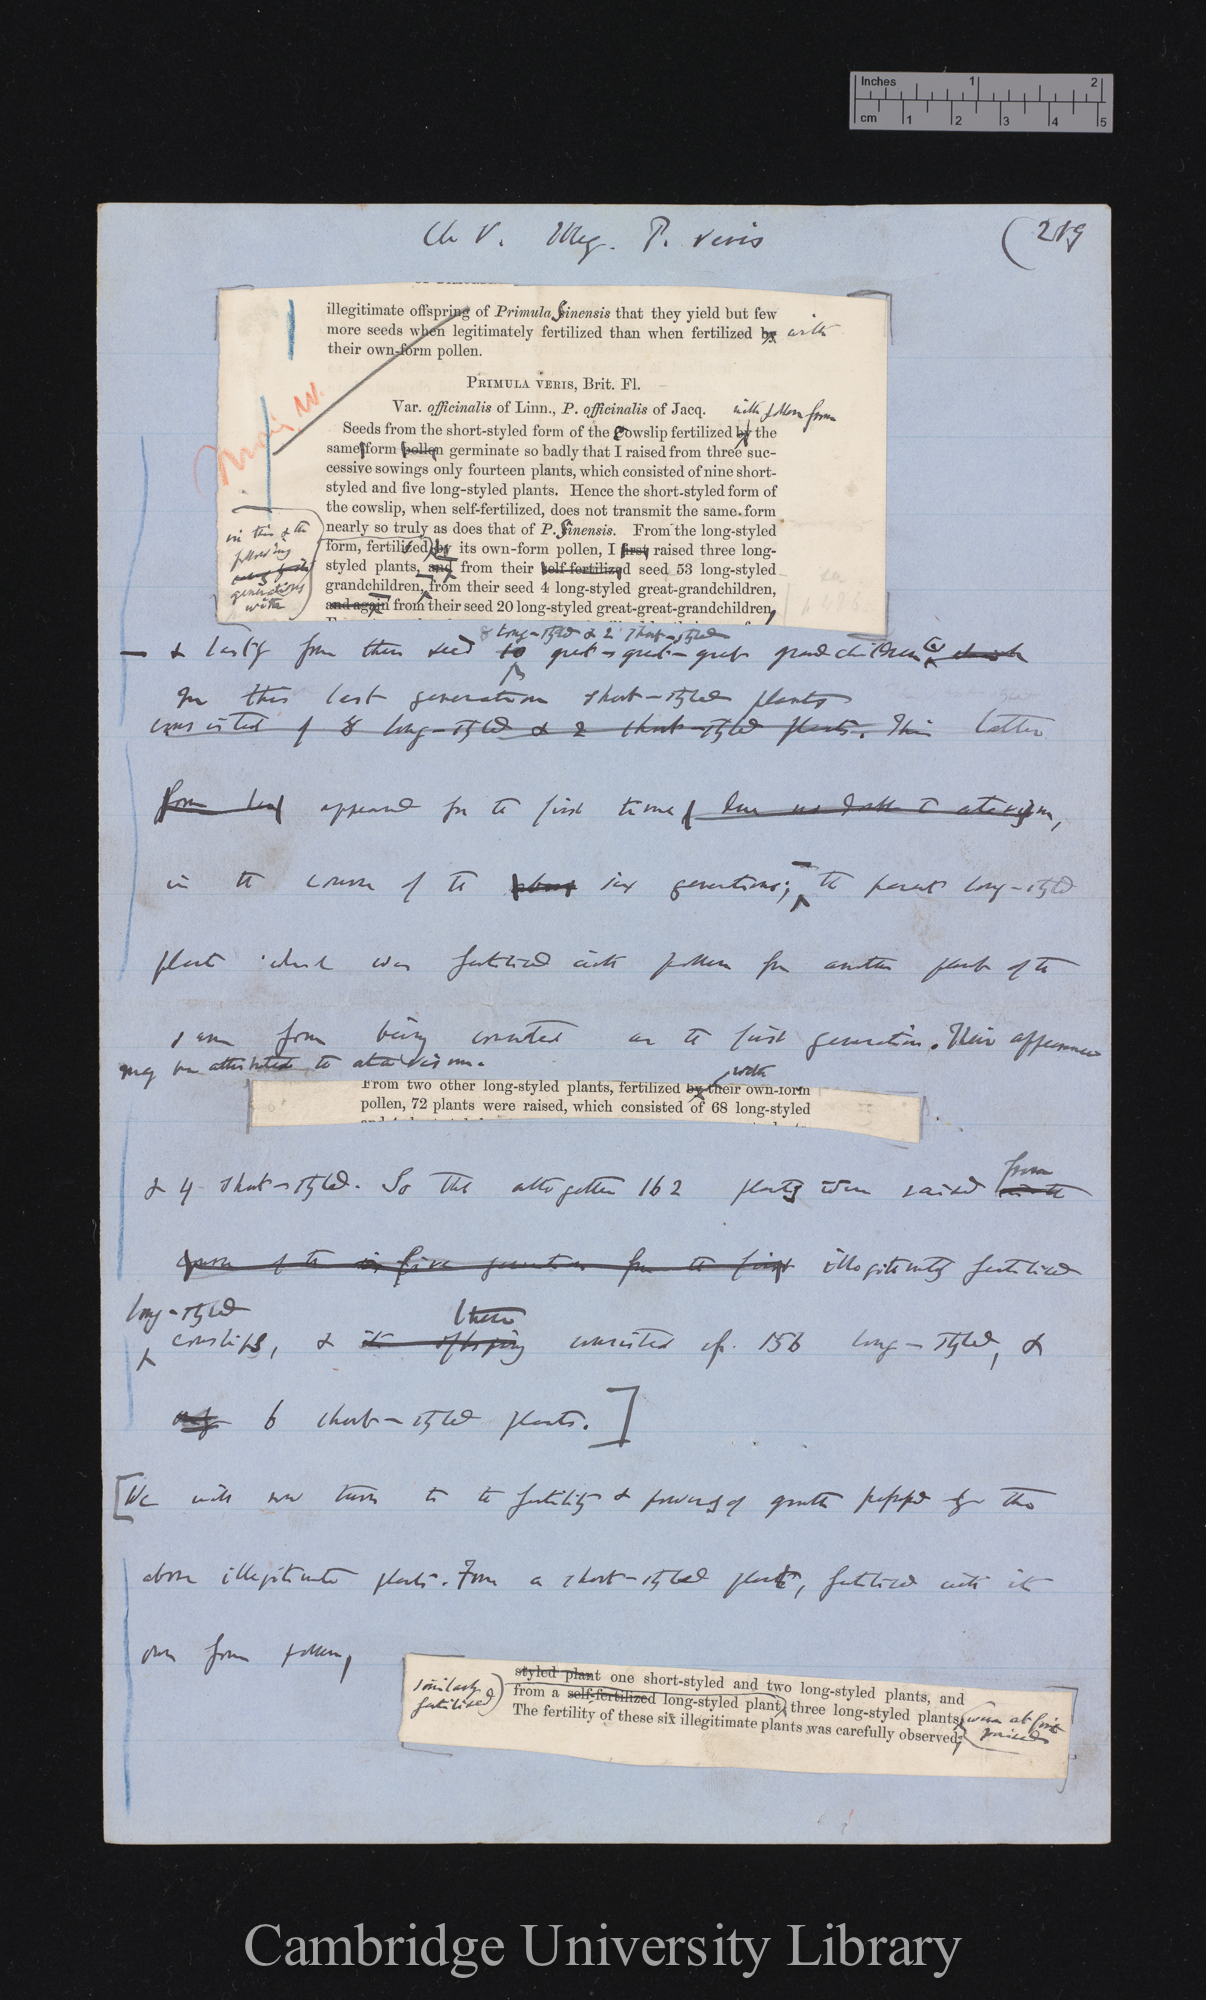 Inches 1 2
cm 1 2 3 4 5
Ch V. Illeg. P. veris (219
illegitimate offspring of Primula Sinensis that they yield but few
more seeds when legitimately fertilized than when fertilized by with
their own-form pollen.
PRIMULA VERIS, Brit. Fl.
Var. officinalis of Linn., P. officinalis of Jacq.
with pollen from
Seeds from the short-styled form of the Cowslip fertilized by the
same form pollen germinate so badly that I raised from three suc-
cessive sowings only fourteen plants, which consisted of nine short-
styled and five long-styled plants. Hence the short-styled form of
the cowslip, when self-fertilized, does not transmit the same form
nearly so truly as does that of P. Sinensis. From the long-styled
form, fertilized by its own-form pollen, I first raised three long-
styled plants, and from their self-fertilized seed 53 long-styled
grandchildren, from their seed 4 long-styled great-grandchildren,
and again from their seed 20 long-styled great-great-grandchildren,
in this & the
following
generations
with
8 long-styled & 2 short-styled
& lastly from their seed 10 great-great-great grandchildren which
In this last generation short-styled plants
consisted of 8 long-styled & 2 short-styled plants. This latter
form had appeared for the first time, due no doubt to atavism,
in the course of the six generations; the parent long-styled
plant which was fertilised with pollen from another plant of the
same form being counted as the first generation. Their appearance
may be attributed to atavism.
with
From two other long-styled plants, fertilized by their own-form
pollen, 72 plants were raised, which consisted of 68 long-styled
& 4 short-styled. So that altogether 162 plants were raised in the
from
course of the five generations from the first illegitimately fertilised
long-styled
these
cowslips, & its offspring consisted of 156 long-styled, &
only 6 short-styled plants.]
[We will now turn to the fertility & powers of growth possessed by the
above illegitimate plants. From a short-styled plant, fertilised with its
own form pollen,
styled plant one short-styled and two long-styled plants, and
from a self-fertilized long-styled plant, three long-styled plants
The fertility of these six illegitimate plants was carefully observed;
similarly
fertilised
were at first
raised
Cambridge University Library